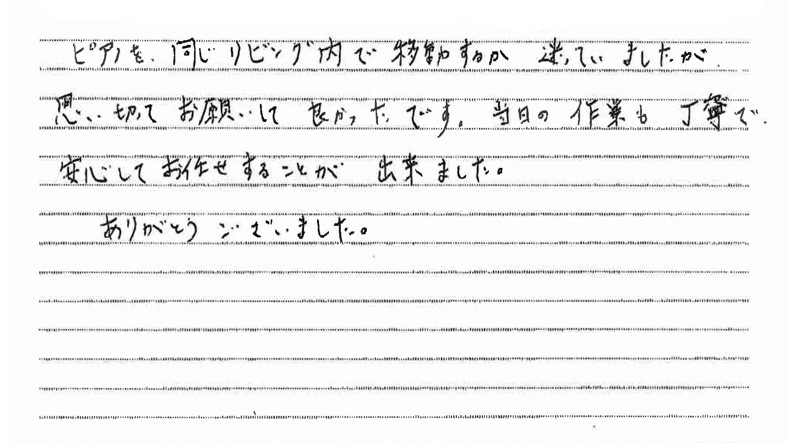 ピアノを、同じリビング内で移動するか 迷っていましたが、
思い切って お願いして 良かったです。当日の 作業も 丁寧で、
安心して お任せすることが 出来ました。
ありがとう ございました。